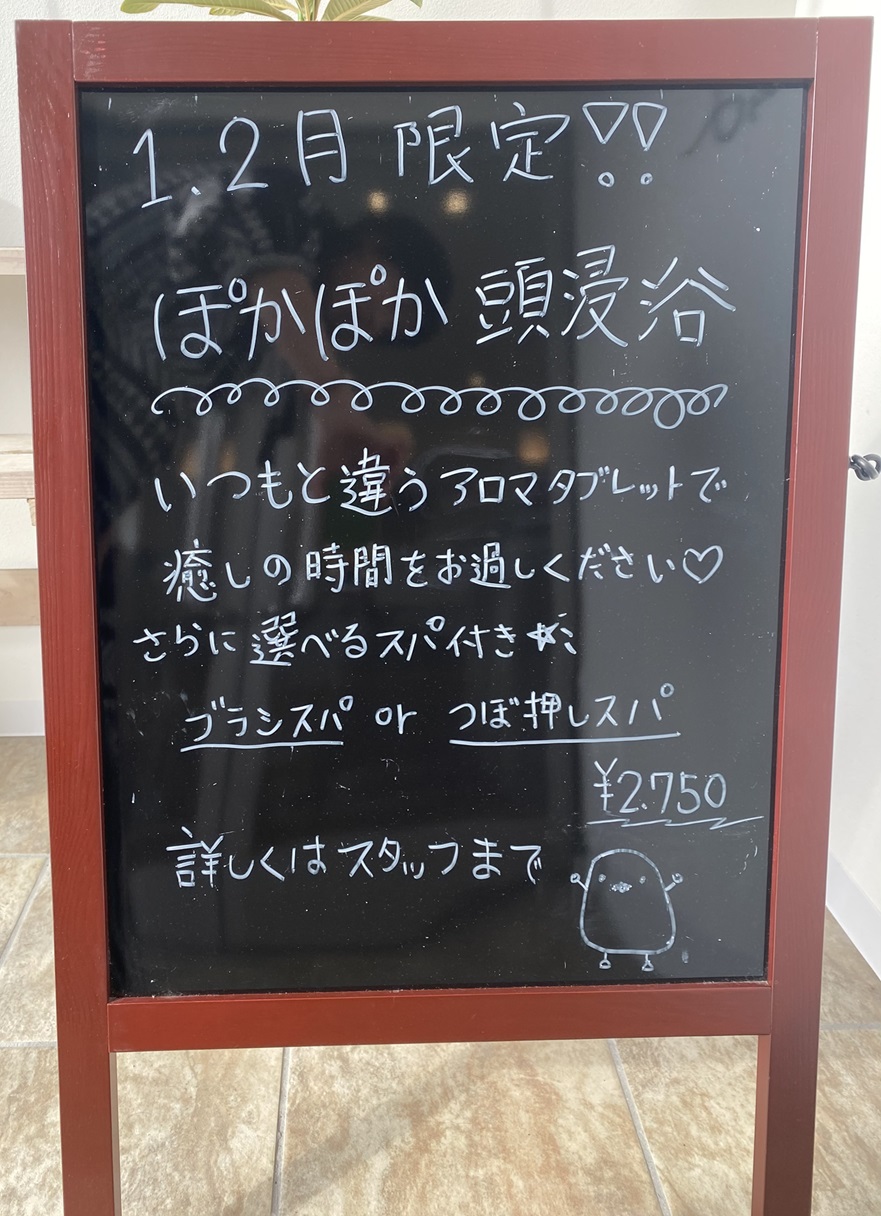 1.2月 限定!!
ぽかぽか 頭浸浴
いつもと違うアロマタブレットで
癒しの時間をお過しください♡
さらに選べるスパ付き★
ブラシスパ or つぼ押しスパ
¥2.750
詳しくはスタッフまで